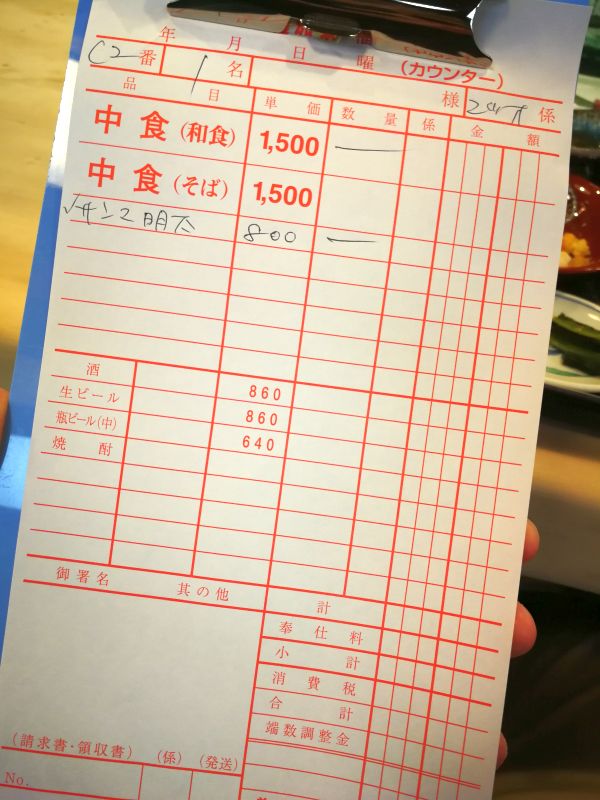 年 月 日 曜 (カウンター)
C2 番 1 名 様 係
品 目 単価 数量 係 金額
中食(和食) 1,500 一
中食(そば) 1,500
✓サンマ明太 800 一
酒
生ビール 860
瓶ビール(中) 860
焼酎 640
御署名 其の他 計
奉仕料
小計
消費税
合計
端数調整金
(請求書・領収書) (係) (発送)
No.